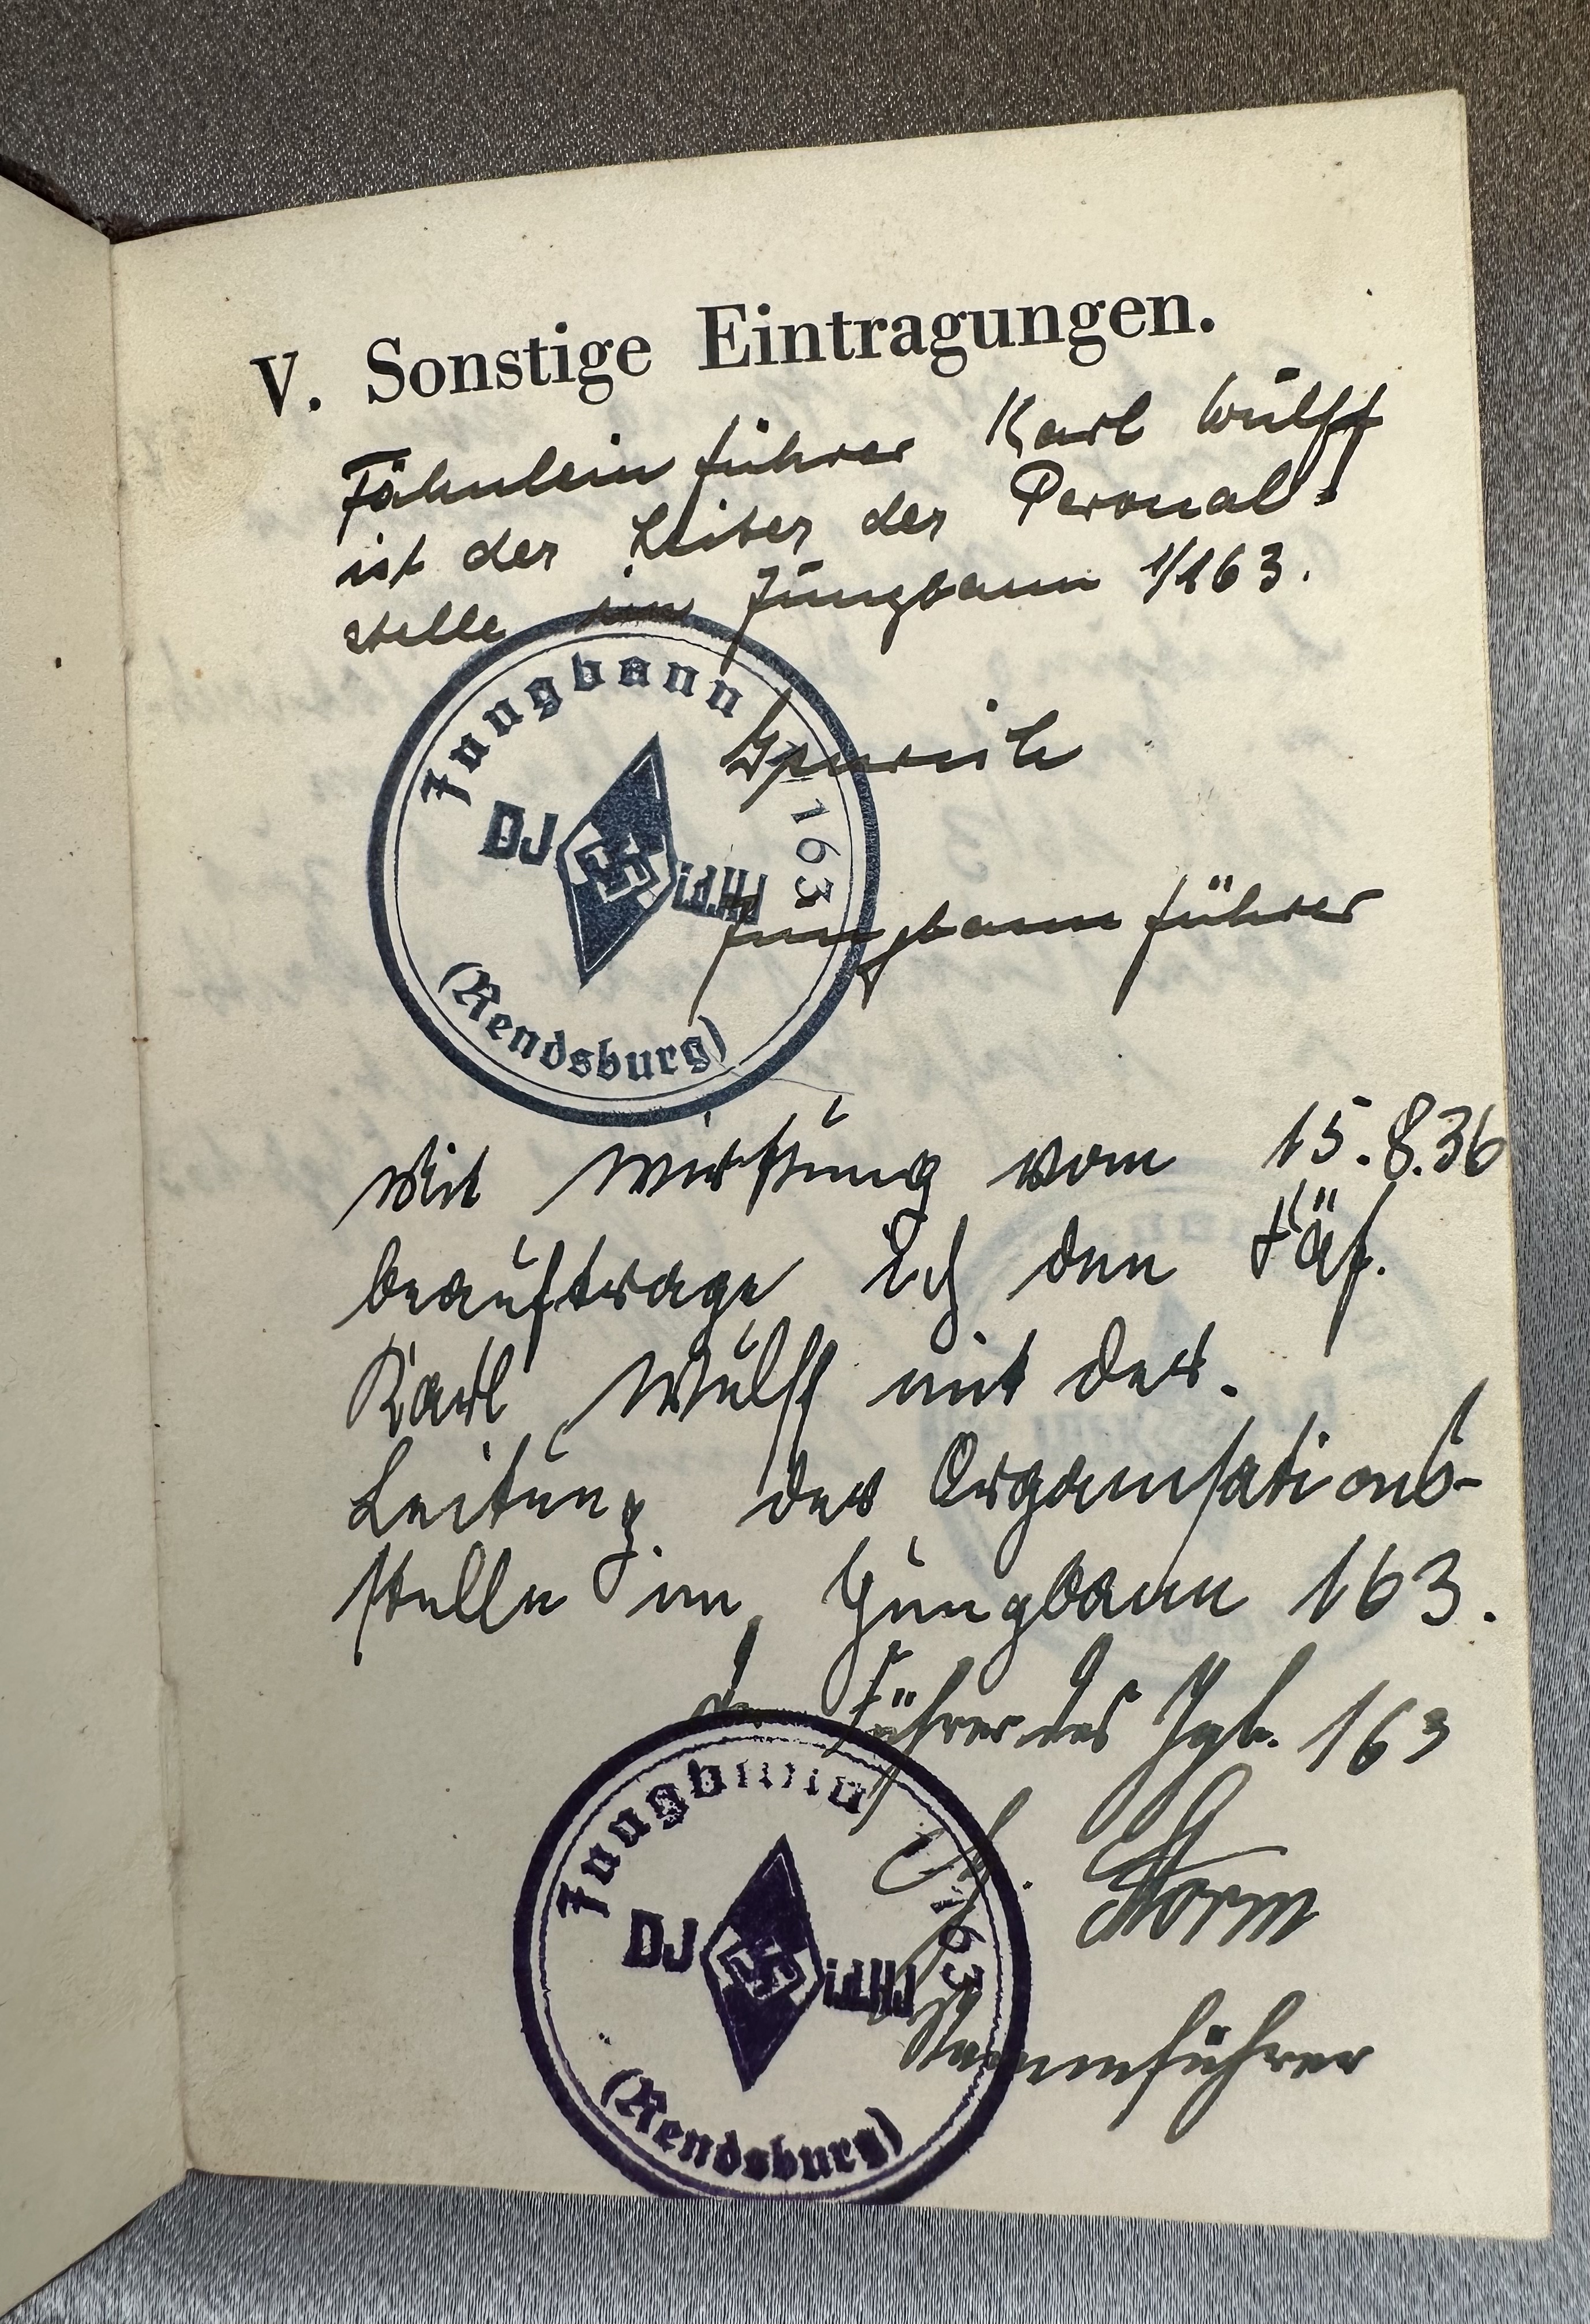 V. Sonstige Eintragungen.
Fähnleinführer Karl Wulff
ist der Leiter der Personal-
stelle im Jungbann 1/163.
Jungbann 163
DJ i.d.HJ
(Rendsburg)
Jungbannführer
Mit Wirkung vom 15.8.36
beauftrage ich den Fäf.
Karl Wulff mit der
Leitung der Organisations-
stelle im Jungbann 163.
der Führer des Jgb. 163
Jungbann 163
DJ i.d.HJ
(Rendsburg)
Storm
Stammführer